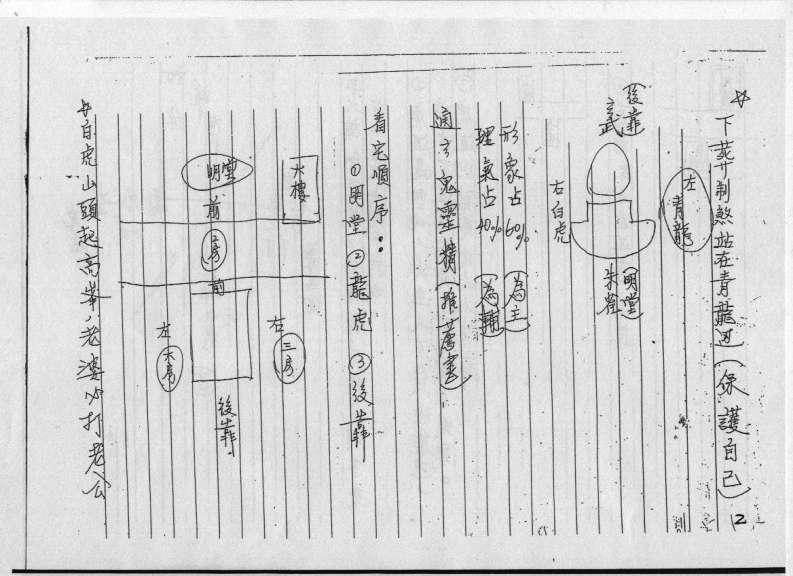 ☆下葬制煞站在青龍邊(保護自己)
左青龍
後靠
玄武
(明堂)
朱雀
右白虎
形象占60% (為主)
理氣占40% (為輔)
通玄鬼靈(推薦書)
看宅順序:
①明堂②龍虎③後靠
大樓
明堂
前
二房
前
右三房
左大房
後靠
☆白虎山頭起高峯,老婆必打老公
2